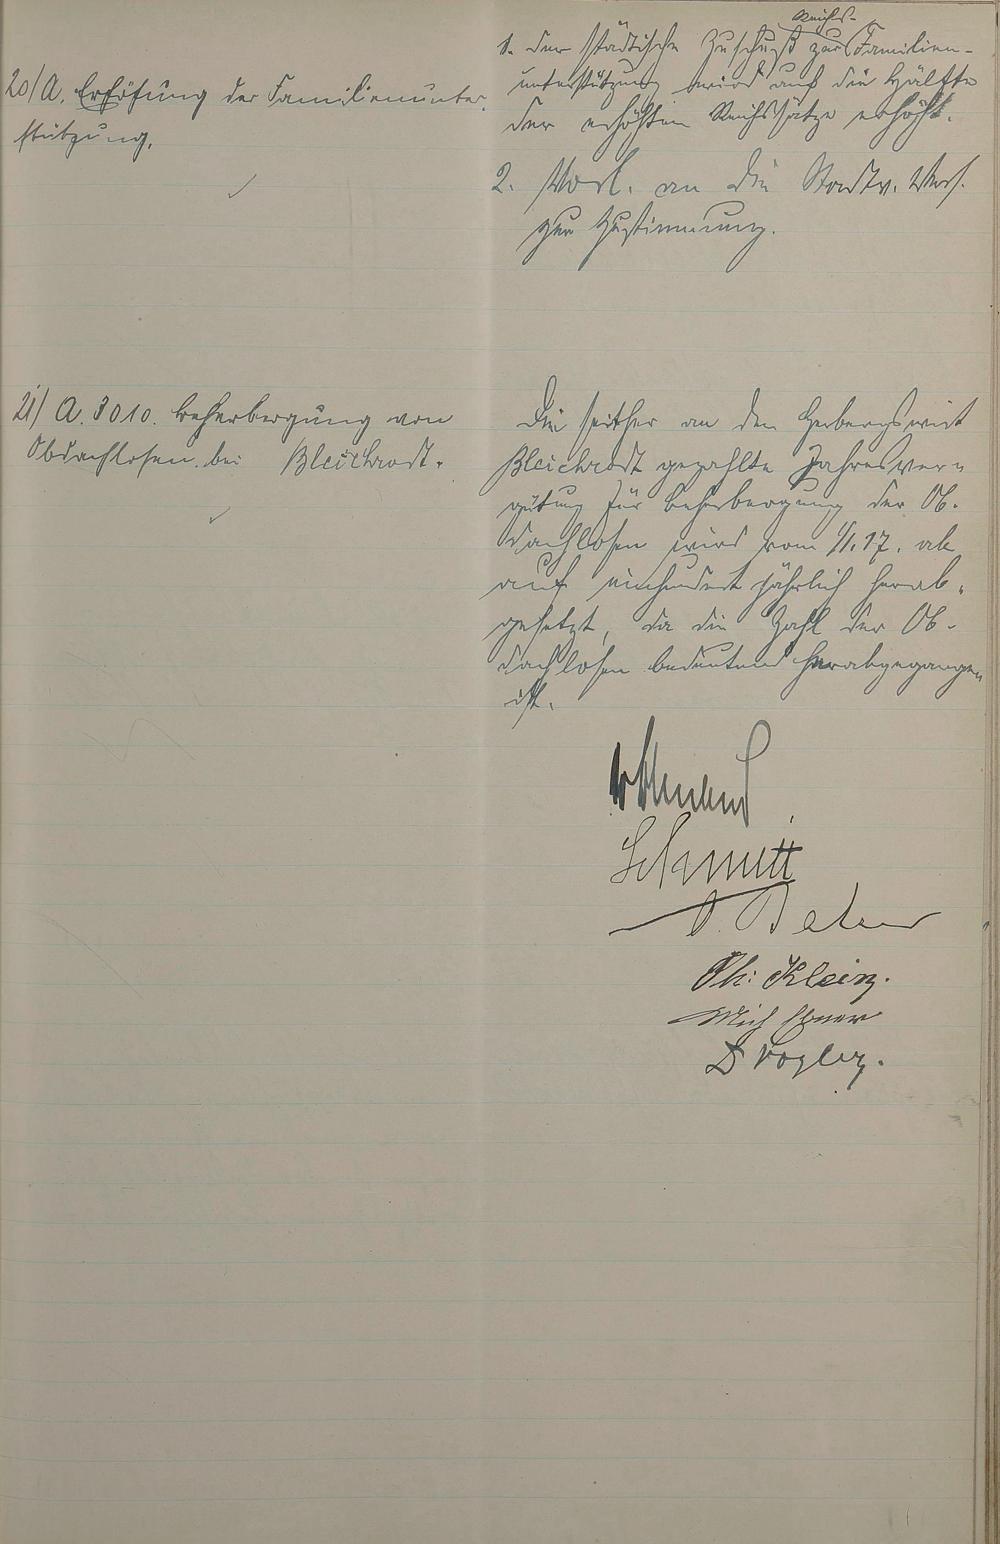 20/ A. Erhöhung der Familienunter-
stützung.
1. Der städtische Zuschuß zur Reichs-Familien-
unterstützung wird auf die Hälfte
der erhöhten Reichssätze erhöht.
2. Vorl. an die Stadtv. Vers.
zur Zustimmung.
21/ A. 3010. Beherbergung von
Obdachlosen bei Bleichrodt.
Die seither an den Herbergswirt
Bleichrodt gezahlte Jahresver-
gütung für Beherbergung der Ob-
dachlosen wird vom 1/1. 17. ab
auf einhundert jährlich herab-
gesetzt, da die Zahl der Ob-
dachlosen bedeutend herabgegangen
ist.
Schmitt
Ph: Klein.
Mich
D Vogler.